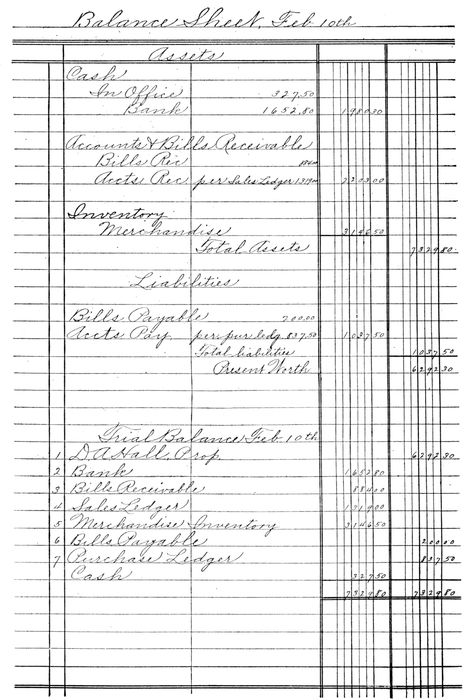 Balance Sheet, Feb 10th
Assets
Cash
In Office 327.50
Bank 1652.80 1980.30
Accounts & Bills Receivable
Bills Rec 884.00
Accts Rec per Sales Ledger 1319.00 2203.00
Inventory
Merchandise 3146.50
Total Assets 7329.80
Liabilities
Bills Payable 200.00
Accts Pay per pur ledg. 837.50 1037.50
Total liabilities 1037.50
Present Worth 6292.30
Trial Balance Feb 10th
1 D.A. Hall, Prop 6292.30
2 Bank 1652.80
3 Bills Receivable 884.00
4 Sales Ledger 1319.00
5 Merchandise Inventory 3146.50
6 Bills Payable 200.00
7 Purchase Ledger 837.50
Cash 327.50
7329.80 7329.80